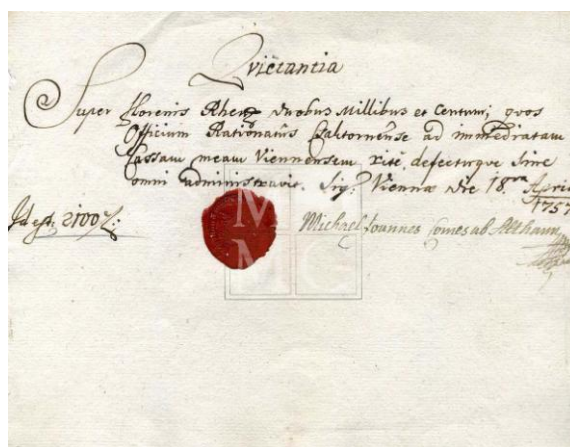 Quietantia
Super florenis Rhen duobus Millibus et Centum; quos
Officium Rationatus Csaktornense ad immediatam
Cassam meam Viennensem rite defectuque sine
omni administravit. Sig: Viennæ die 18va April
1757
Id est 2100
Michael Joannes Comes ab Althann
M M
M C